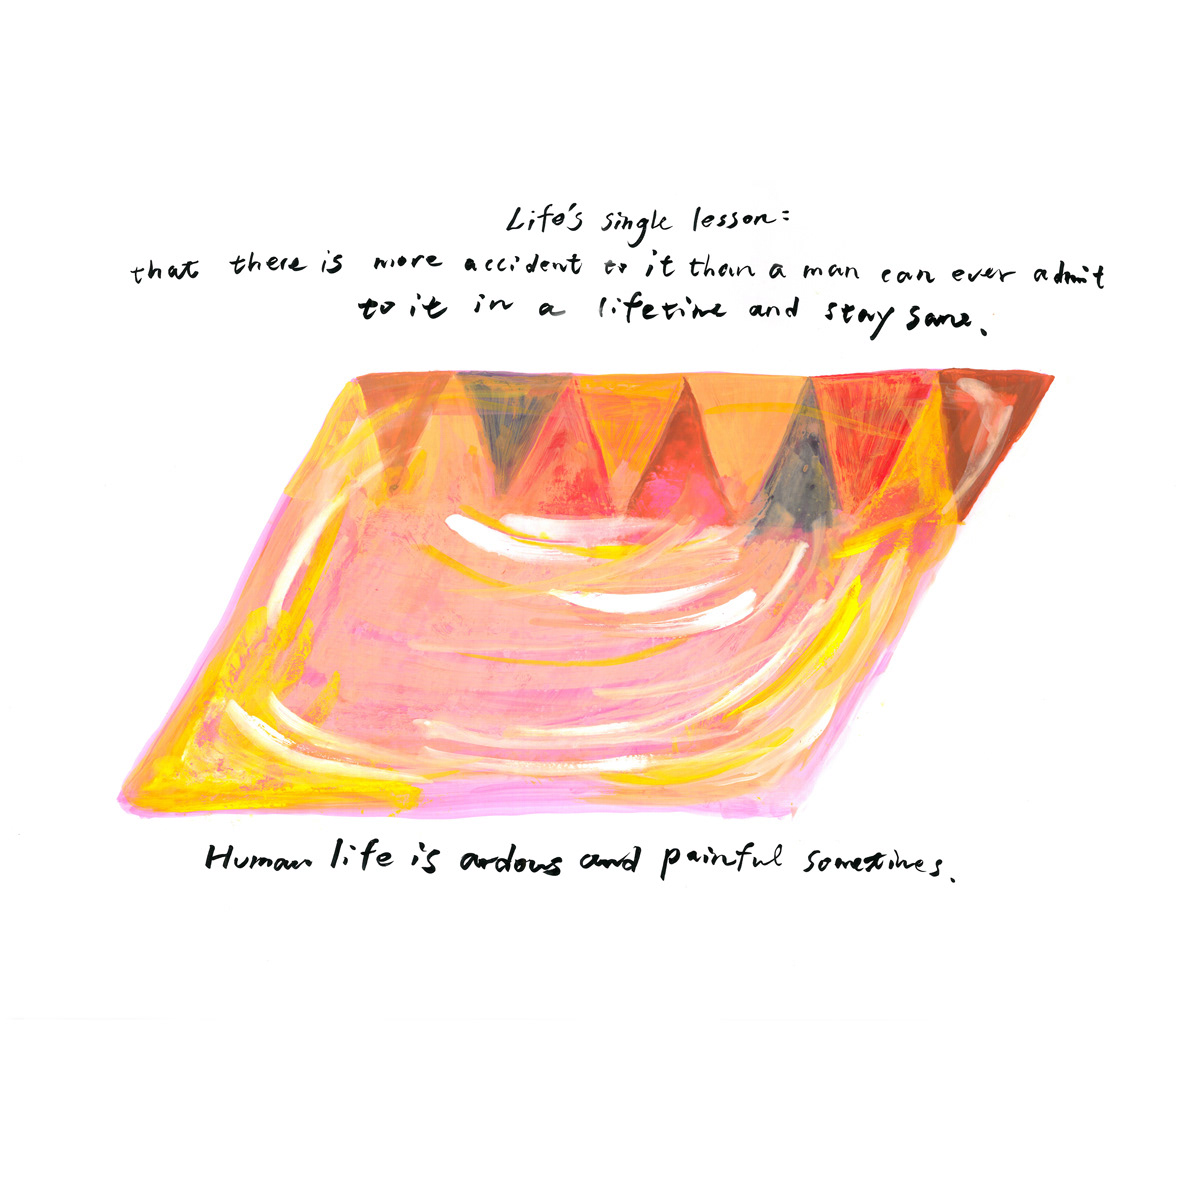 Life's single lesson:
that there is more accident to it than a man can ever admit
to it in a lifetime and stay sane.
Human life is ardous and painful sometimes.